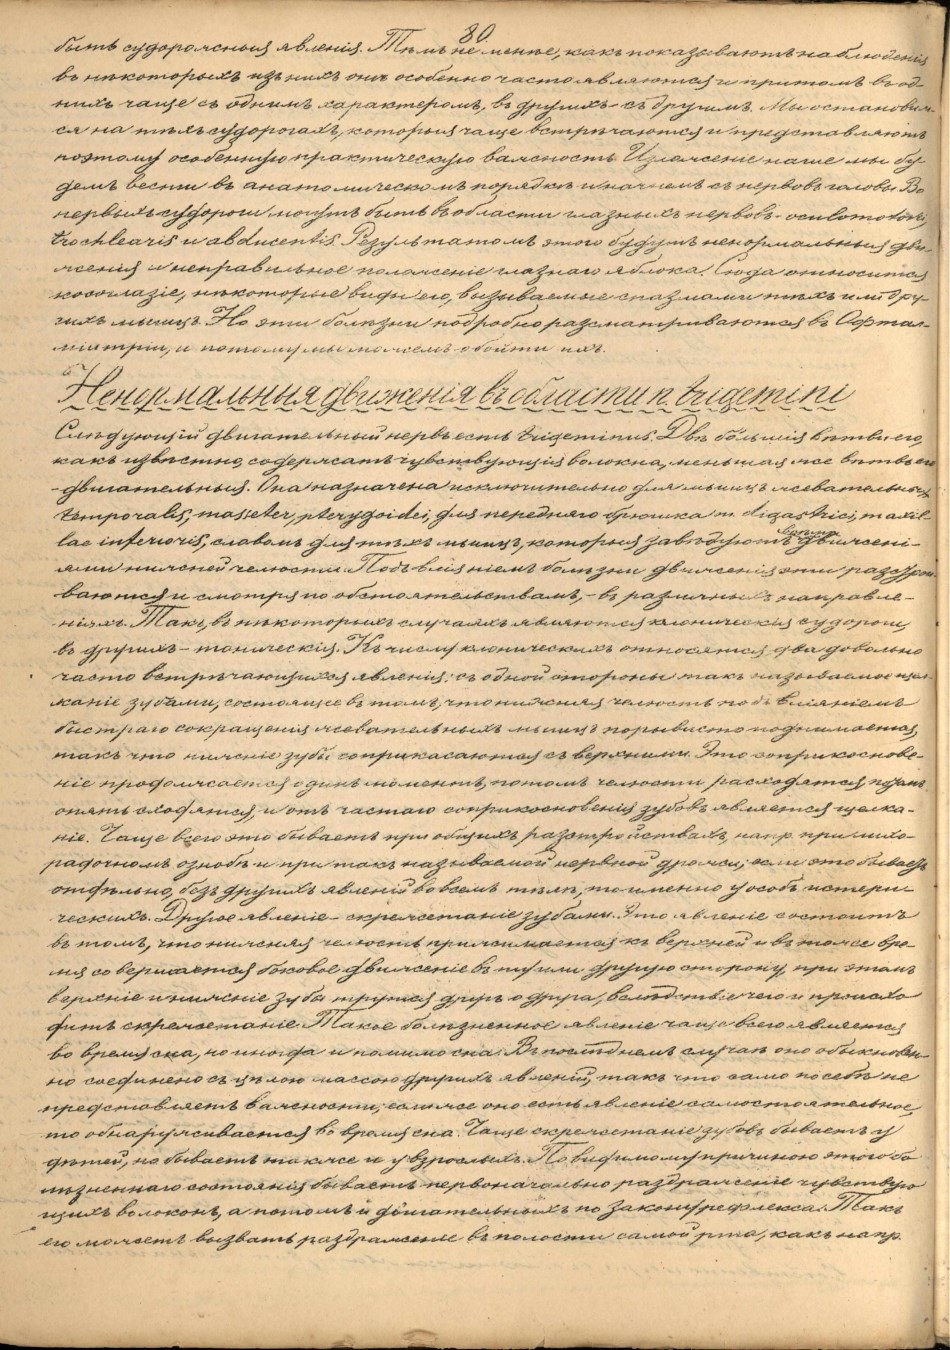 80
быть судорожныя явленія. Тѣмъ не менѣе, какъ показываютъ наблюденія
въ нѣкоторыхъ изъ нихъ онѣ особенно часто являются и притомъ въ од-
нихъ чаще съ однимъ характеромъ, въ другихъ – съ другимъ. Мы остановим-
ся на тѣхъ судорогахъ, которыя чаще встрѣчаются и представляютъ
поэтому особенную практическую важность. Изложеніе наше мы бу-
демъ вести въ анатомическомъ порядкѣ и начнемъ съ нервовъ головы. Во
первыхъ судороги могутъ быть въ области глазныхъ нервовъ – oculomotorii,
trochlearis и abducentis. Результатомъ этого будутъ ненормальныя дви-
женія и неправильное положеніе глазнаго яблока. Сюда относится
косоглазіе, нѣкоторые виды его, вызываемые спазмами тѣхъ или дру-
гихъ мышцъ. Но эти болѣзни подробно разсматриваются въ Офтал-
міатріи, и потому мы можемъ обойти ихъ.
Ненормальныя движенія въ области n. trigemini
Слѣдующій двигательный нервъ есть trigeminus. Двѣ большія вѣтви его,
какъ извѣстно, содержатъ чувствующія волокна, меньшая же вѣтвь его
– двигательныя. Она назначена исключительно для мышцъ жевательныхъ
temporalis, masseter, pterygoidei, для передняго брюшка m. digastrici, maxil-
lae inferioris, словомъ для тѣхъ мышцъ, которыя завѣдуютъ движені-
ями нижней челюсти. Подъ вліяніемъ болѣзни движенія эти разстраи-
ваются и смотря по обстоятельствамъ, – въ различныхъ направле-
ніяхъ. Такъ, въ нѣкоторыхъ случаяхъ являются клоническія судороги,
въ другихъ – тоническія. Къ числу клоническихъ относятся два довольно
часто встрѣчающихся явленія: съ одной стороны такъ называемое щел-
каніе зубами, состоящее въ томъ, что нижняя челюсть подъ вліяніемъ
быстраго сокращенія жевательныхъ мышцъ порывисто поднимается,
такъ что нижніе зубы соприкасаются съ верхними. Это соприкоснове-
ніе продолжается одинъ моментъ, потомъ челюсти расходятся, потомъ
опять сходятся, и отъ частаго соприкосновенія зубовъ является щелка-
ніе. Чаще всего это бываетъ при общихъ разстройствахъ, напр. при лихо-
радочномъ ознобѣ и при такъ называемой нервной дрожи; если это бываетъ
отдѣльно, безъ другихъ явленій во всемъ тѣлѣ, то именно у особъ истери-
ческихъ. Другое явленіе – скрежетаніе зубами. Это явленіе состоитъ
въ томъ, что нижняя челюсть прижимается къ верхней и въ тоже вре-
мя совершается боковое движеніе въ ту или другую сторону, при этомъ
верхніе и нижніе зубы трутся другъ о друга, вслѣдствіе чего и происхо-
дитъ скрежетаніе. Такое болѣзненное явленіе чаще всего является
во время сна, но иногда и помимо сна. Въ послѣднемъ случаѣ оно обыкновен-
но соединено съ цѣлою массою другихъ явленій, такъ что само по себѣ не
представляетъ важности; если же оно есть явленіе самостоятельное,
то обнаруживается во время сна. Чаще скрежетаніе зубовъ бываетъ у
дѣтей, но бываетъ также и у взрослыхъ. Повидимому причиною этого бо-
лѣзненнаго состоянія бываетъ первоначально раздраженіе чувствую-
щихъ волоконъ, а потомъ и двигательныхъ по закону рефлекса. Такъ
его можетъ вызвать раздраженіе въ полости самой рта, какъ напр.